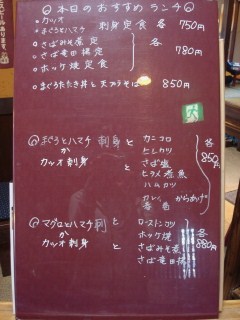 本日のおすすめランチ
・カツオ
・まぐろとハマチ 刺身定食 各750円
・さばみそ煮定
・さば竜田揚定 各780円
・ホッケ焼定食
・まぐろたたき丼と天プラそば 850円
まぐろとハマチ 刺身
か
カツオ刺身
と
カニコロ
ヒレカツ
さば塩
ヒラメ煮魚
ハムカツ
からあげ
各850円
マグロとハマチ刺
か
カツオ刺身
と
ローストンカツ
ホッケ焼
さばみそ煮
さば竜田揚
各880円